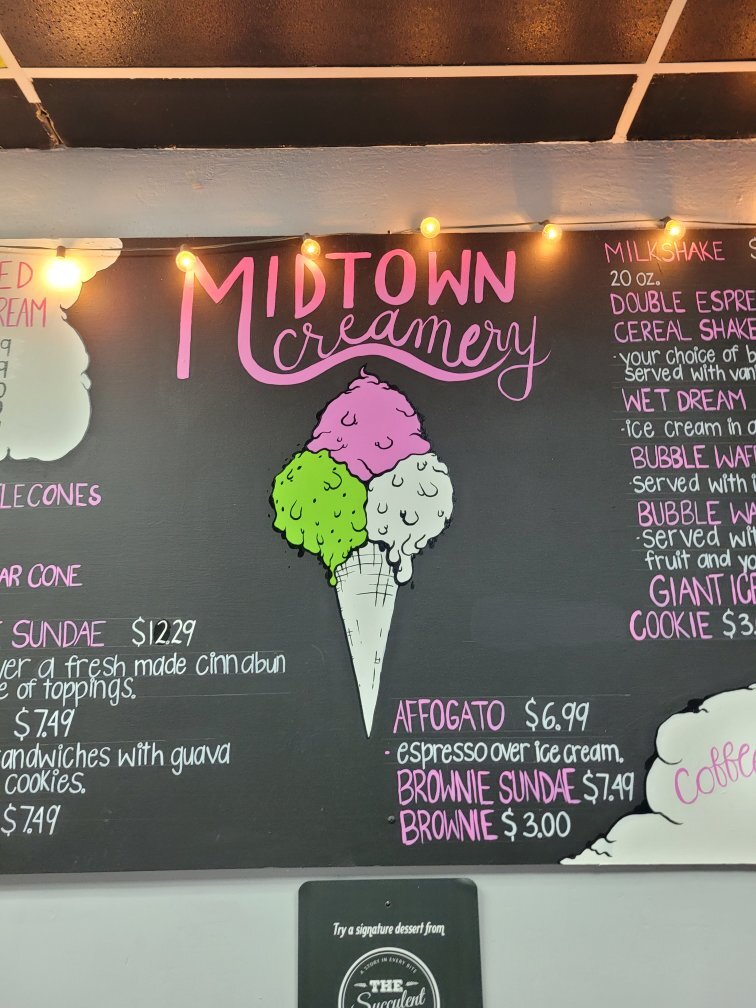 ED
REAM
9
9
0
LECONES
AR CONE
T SUNDAE $12.29
ver a fresh made cinnabun
e of toppings.
$7.49
andwiches with guava
cookies.
$7.49
MIDTOWN
creamery
AFFOGATO $6.99
· espresso over ice cream.
BROWNIE SUNDAE $7.49
BROWNIE $3.00
MILKSHAKE $
20 oz.
DOUBLE ESPRE
CEREAL SHAKE
· your choice of b
served with van
WET DREAM
· ice cream in a
BUBBLE WAF
· served with i
BUBBLE WA
· served wit
fruit and yo
GIANT ICE
COOKIE $3.
Coffee
Try a signature dessert from
A STORY IN EVERY BITE
THE
Succulent